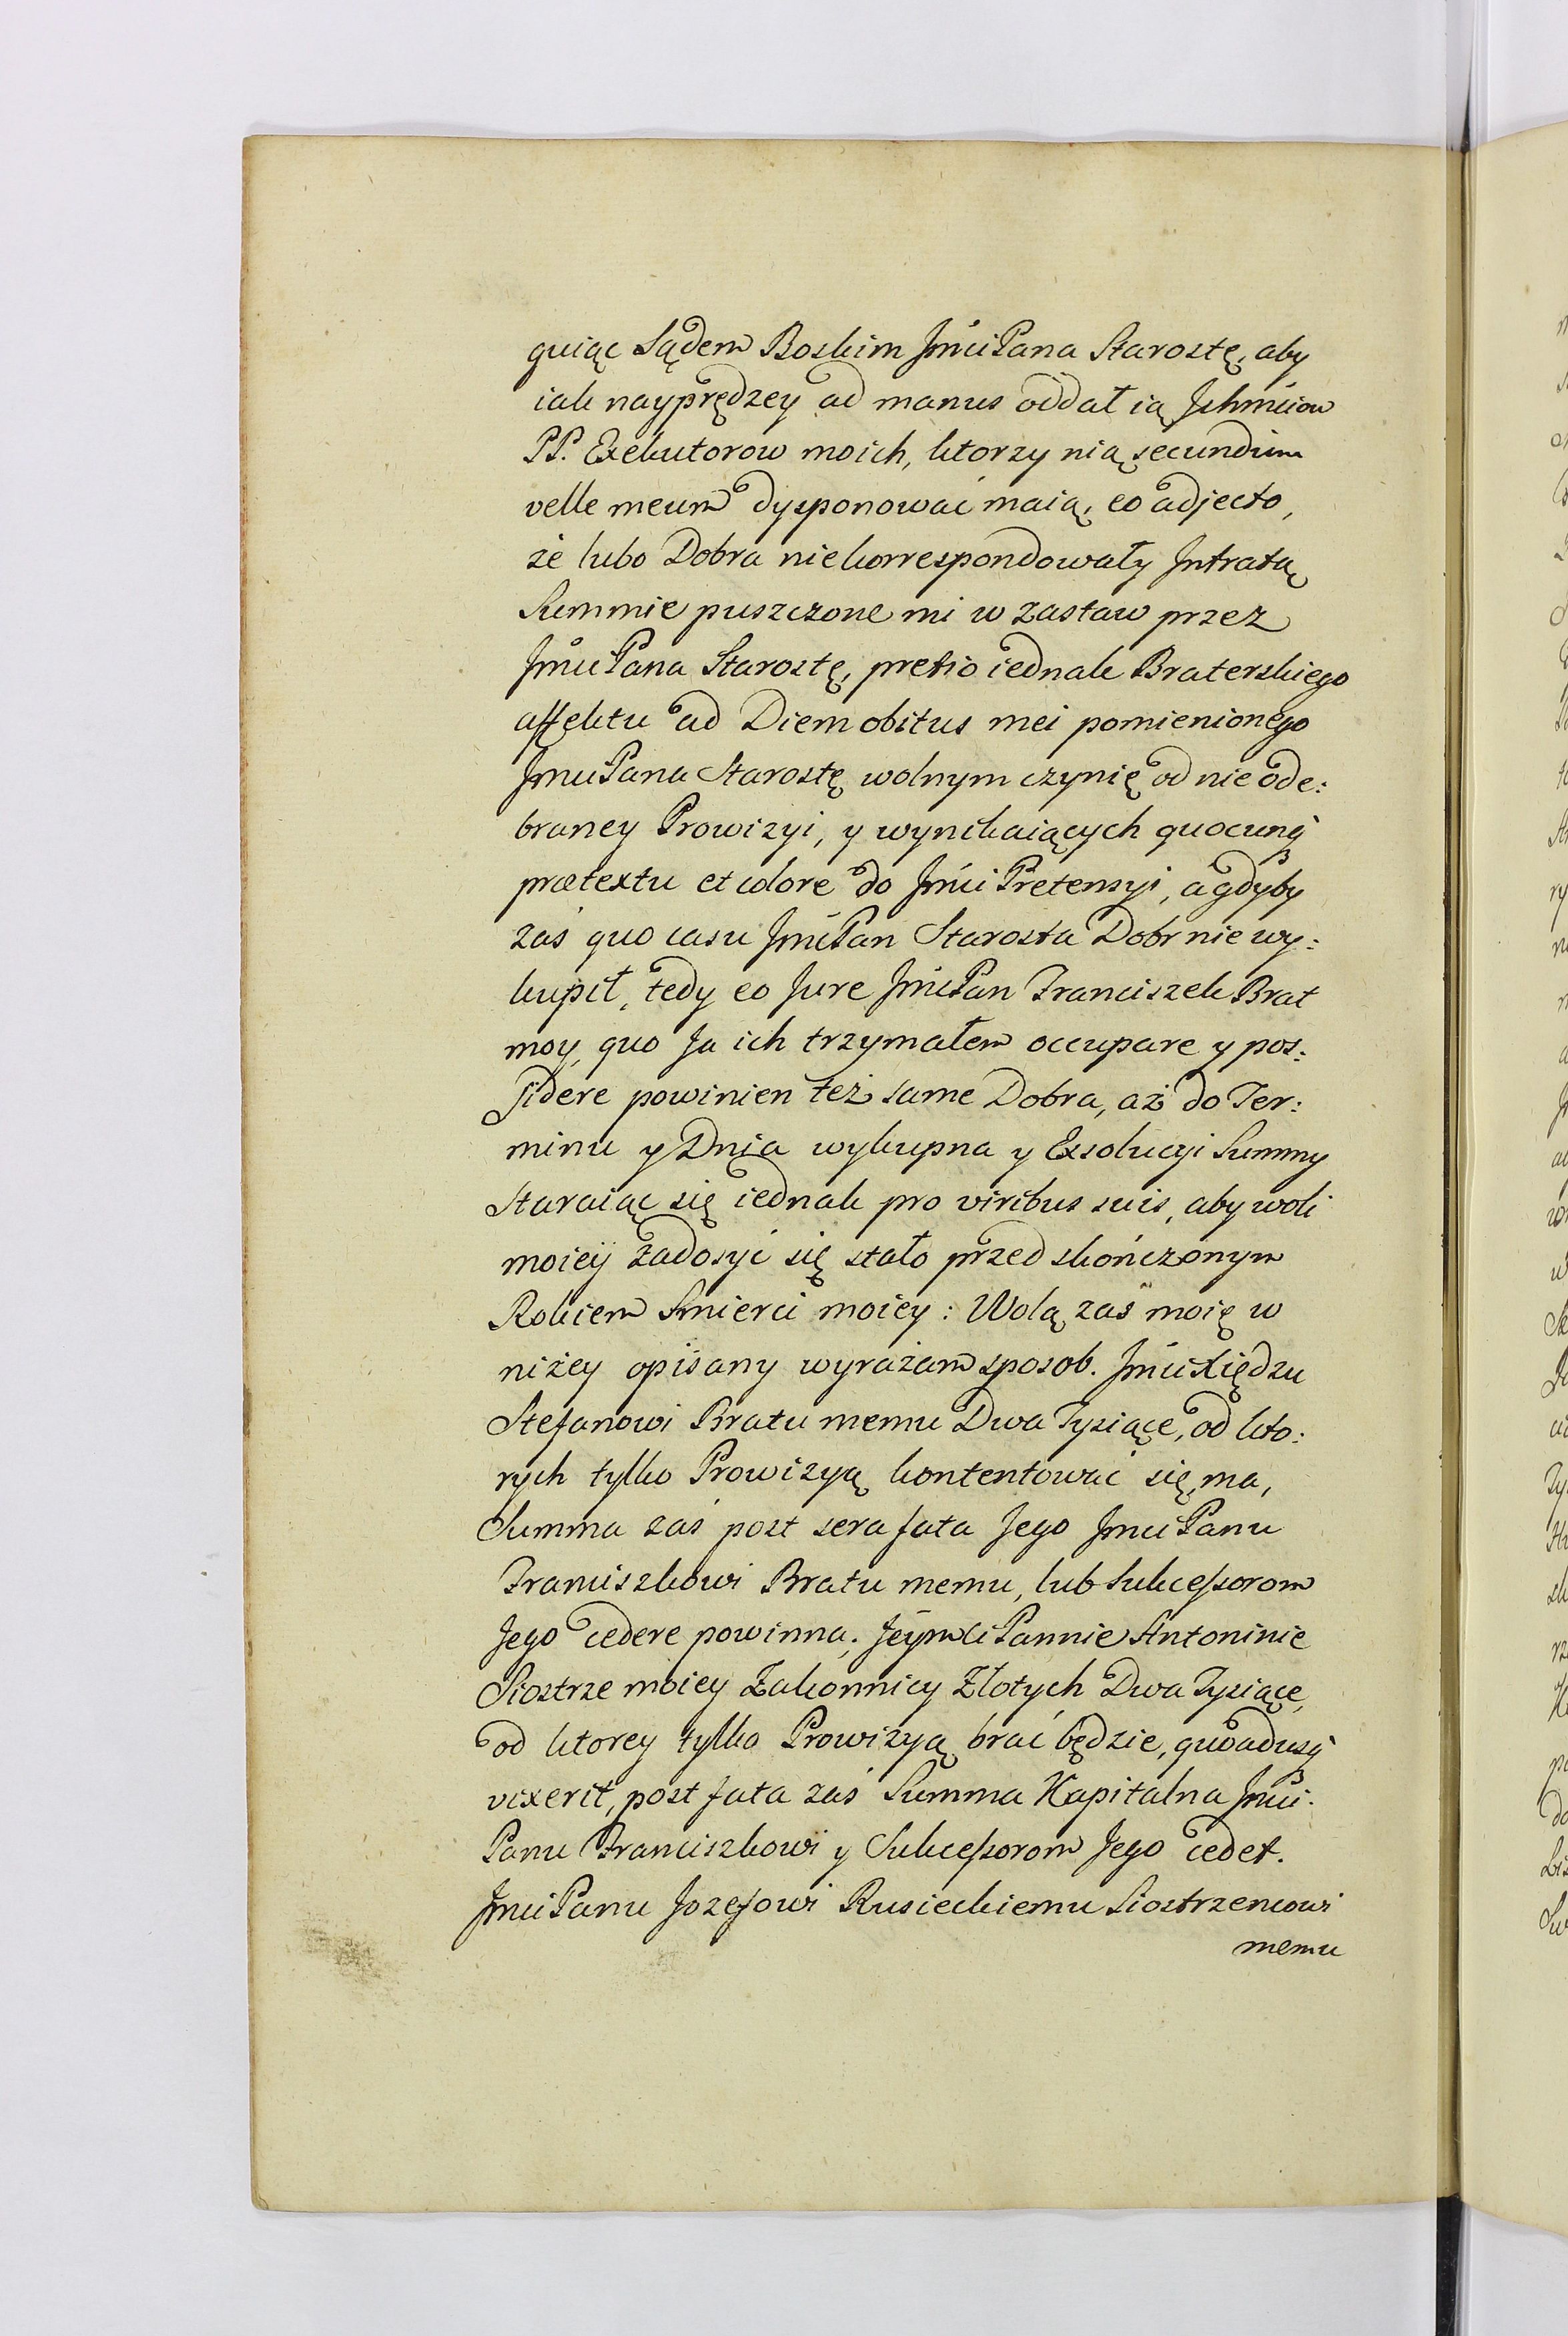 guiąc Sądem Boskim Jmci Pana Starostę, aby
iak nayprędzey ad manus oddał ią Ichmciow
PP. Exekutorow moich, ktorzy nią secundum
velle meum dysponować maią, eo adjecto,
że lubo Dobra niekorrespondowały Jntratą
Summie puszczone mi w zastaw przez
Jmci Pana Starostę, pretio iednak Braterskiego
affektu ad Diem obitus mei pomienionego
Jmci Pana Starostę wolnym czynię od nie ode:
braney Prowizyi, y wynikaiących quocunq́
prætextu et colore do Jmci Pretensyi, a gdyby
zaś quo casu Jmć Pan Starosta Dobr nie wy:
kupił, tedy eo Jure Jmć Pan Franciszek Brat
moy, quo Ja ich trzymałem occupare y pos:
sidere powinien też same Dobra, aż do Ter:
minu y Dnia wykupna y Exsolucyi Summy
Staraiąc się iednak pro viribus suis, aby woli
moiey zadosyć się stało przed skończonym
Rokiem Smierci moiey: Wolą zaś moię w
niżey opisany wyrażam sposob. Jmci Xiędzu
Stefanowi Bratu memu Dwa Tysiące, od kto:
rych tylko Prowizyą kontentować się ma,
Summa zaś post sera fata Jego Jmci Panu
Franciszkowi Bratu memu, lub Sukcessorom
Jego cedere powinna; Jeymci Pannie Antoninie
Siostrze moiey Zakonnicy Złotych Dwa Tysiące,
od ktorey tylko Prowizyą brać będzie, quoadusq́
vixerit, post fata zaś Summa Kapitalna Jmci
Panu Franciszkowi y Sukcessorom Jego cedet.
Jmci Panu Jozefowi Rusieckiemu Siostrzencowi
memu